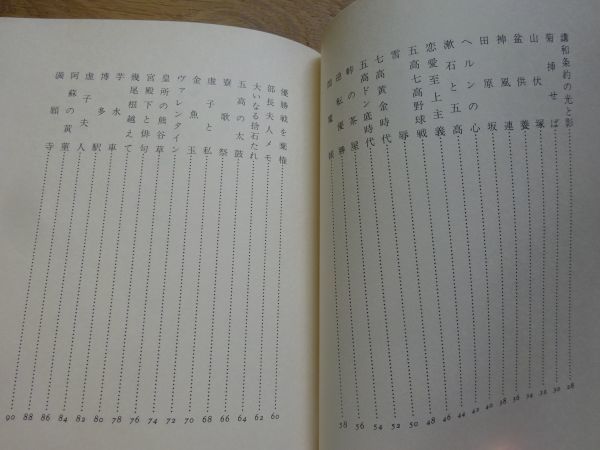 講和条約の光と影 28
菊挿せば 30
山伏塚 32
盆供養 34
神風連 36
田原坂 38
ヘルンの心 40
漱石と五高 42
恋愛至上主義 44
五高七高野球戦 46
雪辱 48
七高黄金時代 50
五高ドン底時代 52
峠の茶屋 54
私優勝 56
58
優勝戦を棄権 60
部長夫人メモ 62
大いなる捨石たれ 64
五高の太鼓 66
寮歌祭 68
虚子と私 70
金魚玉 72
ヴァレンタイン 74
皇所の熊谷草 76
宮殿下と俳句 78
幾尾根越えて 80
水車 82
博多駅 84
虚子夫人 86
阿蘇の黄菫 88
満願寺 90